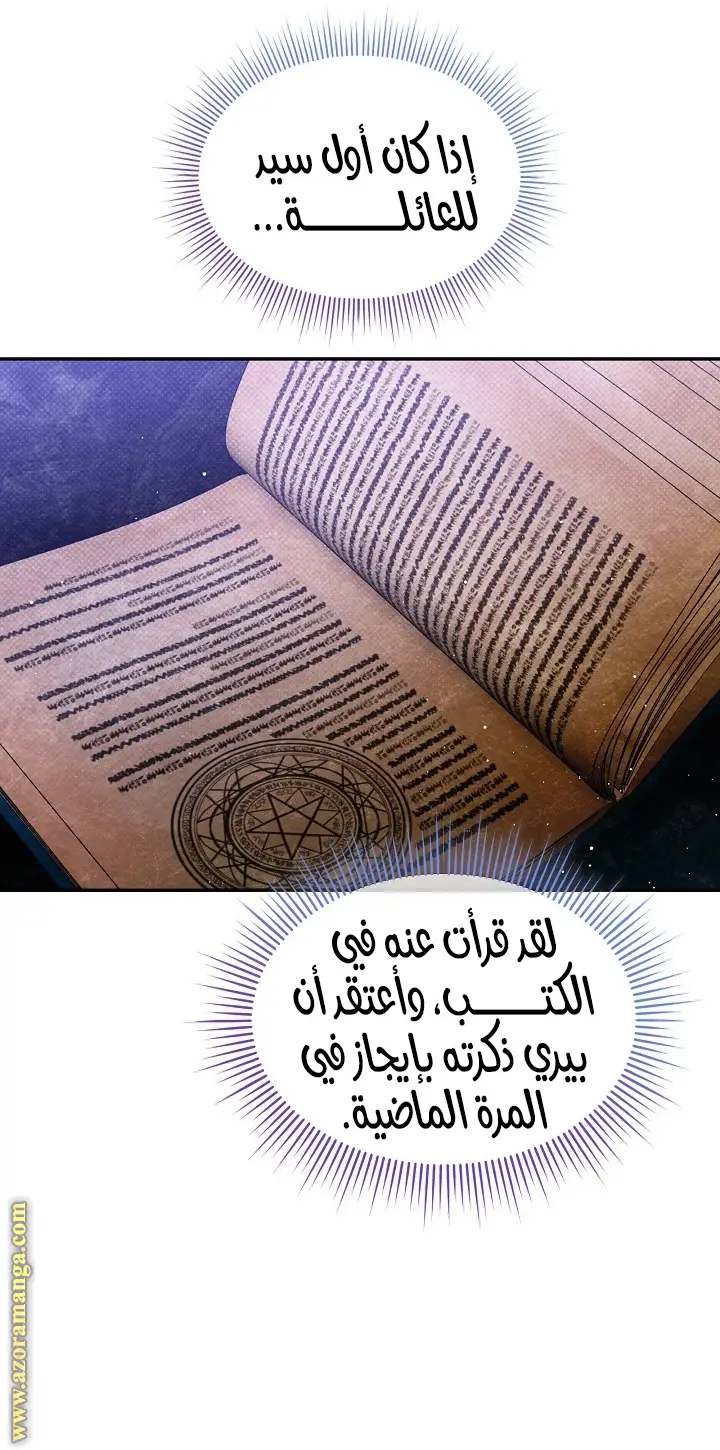 إذا كان أول سيد
للعائلـــــــة...
لقد قرأت عنه في
الكتـــــب، وأعتقد أن
بيري ذكرته بإيجاز في
المرة الماضية.
www.azoramanga.com